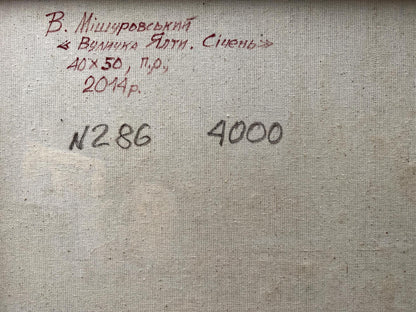 В. Мішуровський
« Вуличка Ялти. Січень»
40×50, п.о.,
2014р.
N286 4000